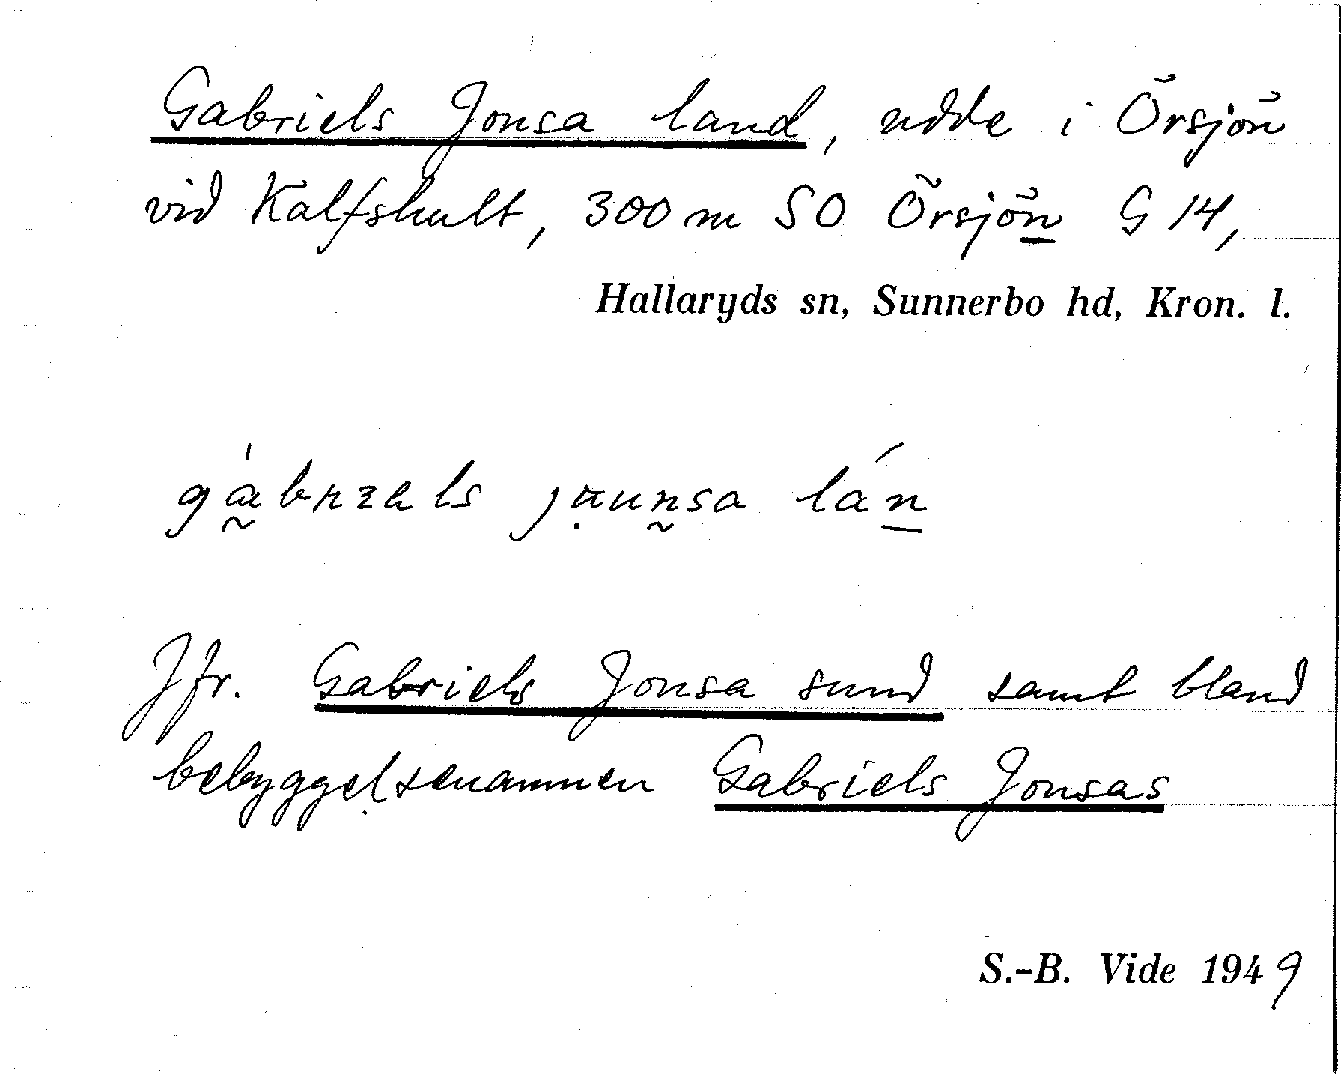 Gabriels Jonsa land, udde i Örsjön
vid Kalfshult, 300 m SO Örsjön G 14,
Hallaryds sn, Sunnerbo hd, Kron. l.
Jfr. Gabriels Jonsa sund samt bland
bebyggelsenamnen Gabriels Jonsas
S.-B. Vide 1949